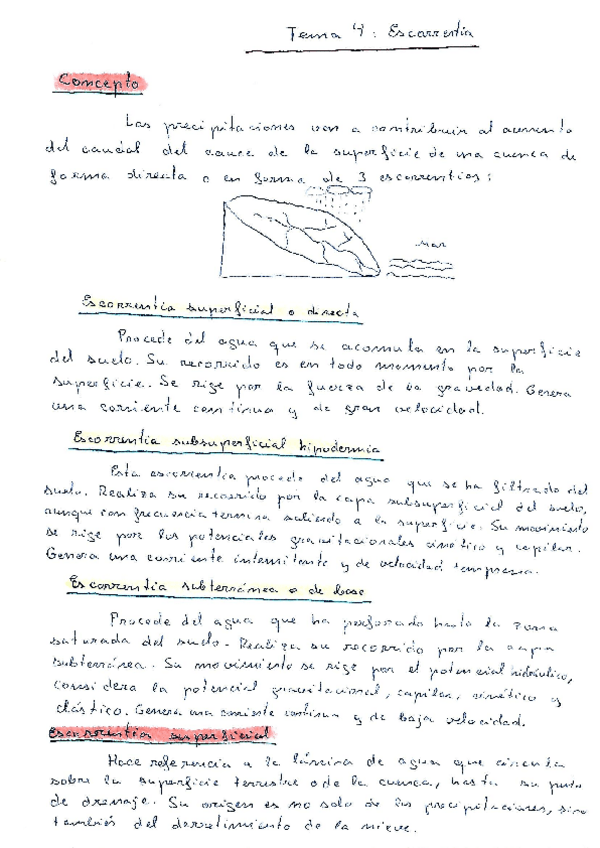 Tema 4: Escorrentía
Concepto
Las precipitaciones van a contribuir al aumento
del caudal del cauce de la superficie de una cuenca de
forma directa o en forma de 3 escorrentías:
Mar
Escorrentía superficial o directa
Procede del agua que se acumula en la superficie
del suelo. Su recorrido es en todo momento por la
superficie. Se rige por la fuerza de la gravedad. Genera
una corriente continua y de gran velocidad.
Escorrentía subsuperficial hipodermia
Esta escorrentía procede del agua que se ha filtrado del
suelo. Realiza su recorrido por la capa subsuperficial del suelo,
aunque con frecuencia termina saliendo a la superficie. Su movimiento
se rige por los potenciales gravitacionales cinético y capilar.
Genera una corriente intermitente y de velocidad
Escorrentía subterránea o de base
Procede del agua que ha perforado hasta la zona
saturada del suelo. Realiza su recorrido por la capa
subterránea. Su movimiento se rige por el potencial hidráulico,
considera la potencial gravitacional, capilar, cinético y
elástico. Genera una corriente continua y de baja velocidad.
Escorrentía superficial
Hace referencia a la lámina de agua que circula
sobre la superficie terrestre o de la cuenca, hasta su punto
de drenaje. Su origen es no solo de las precipitaciones, sino
también del derretimiento de la nieve.